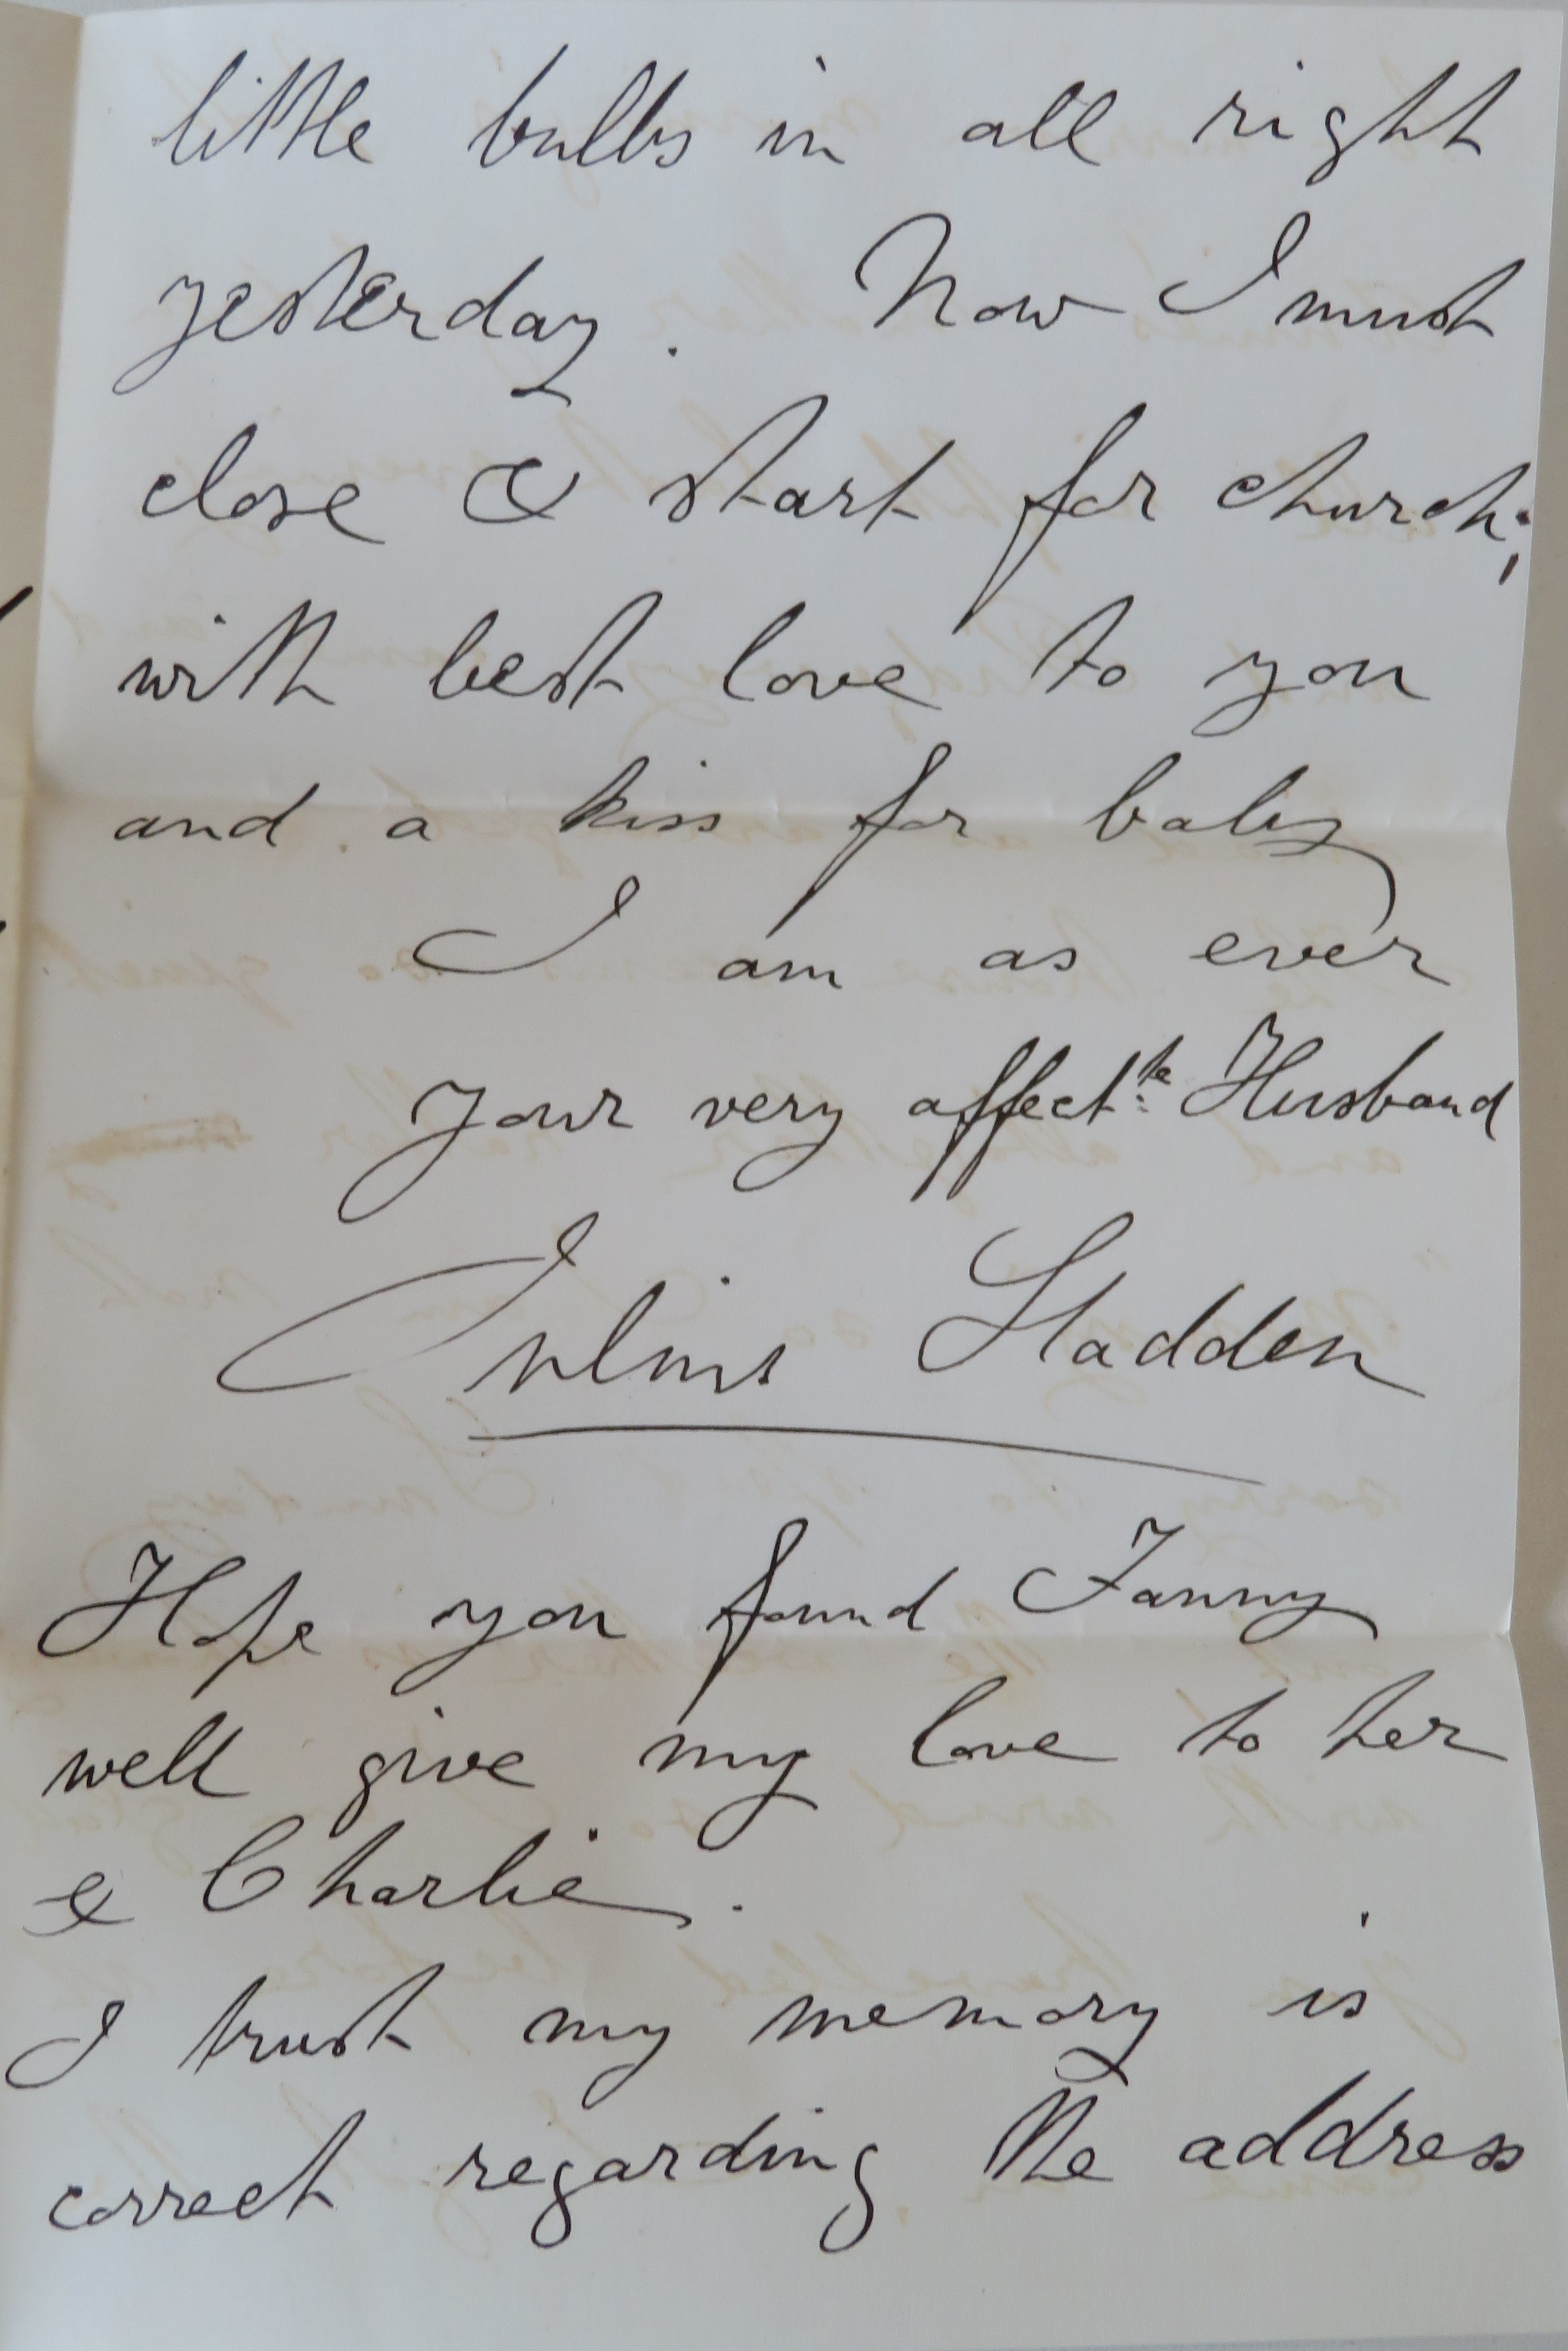 little bulbs in all right
yesterday. Now I must
close & start for church;
with best love to you
and a kiss for baby
I am as ever
your very affectte Husband
Julius Sladden
Hope you found Fanny
well give my love to her
& Charlie.
I trust my memory is
correct regarding the address